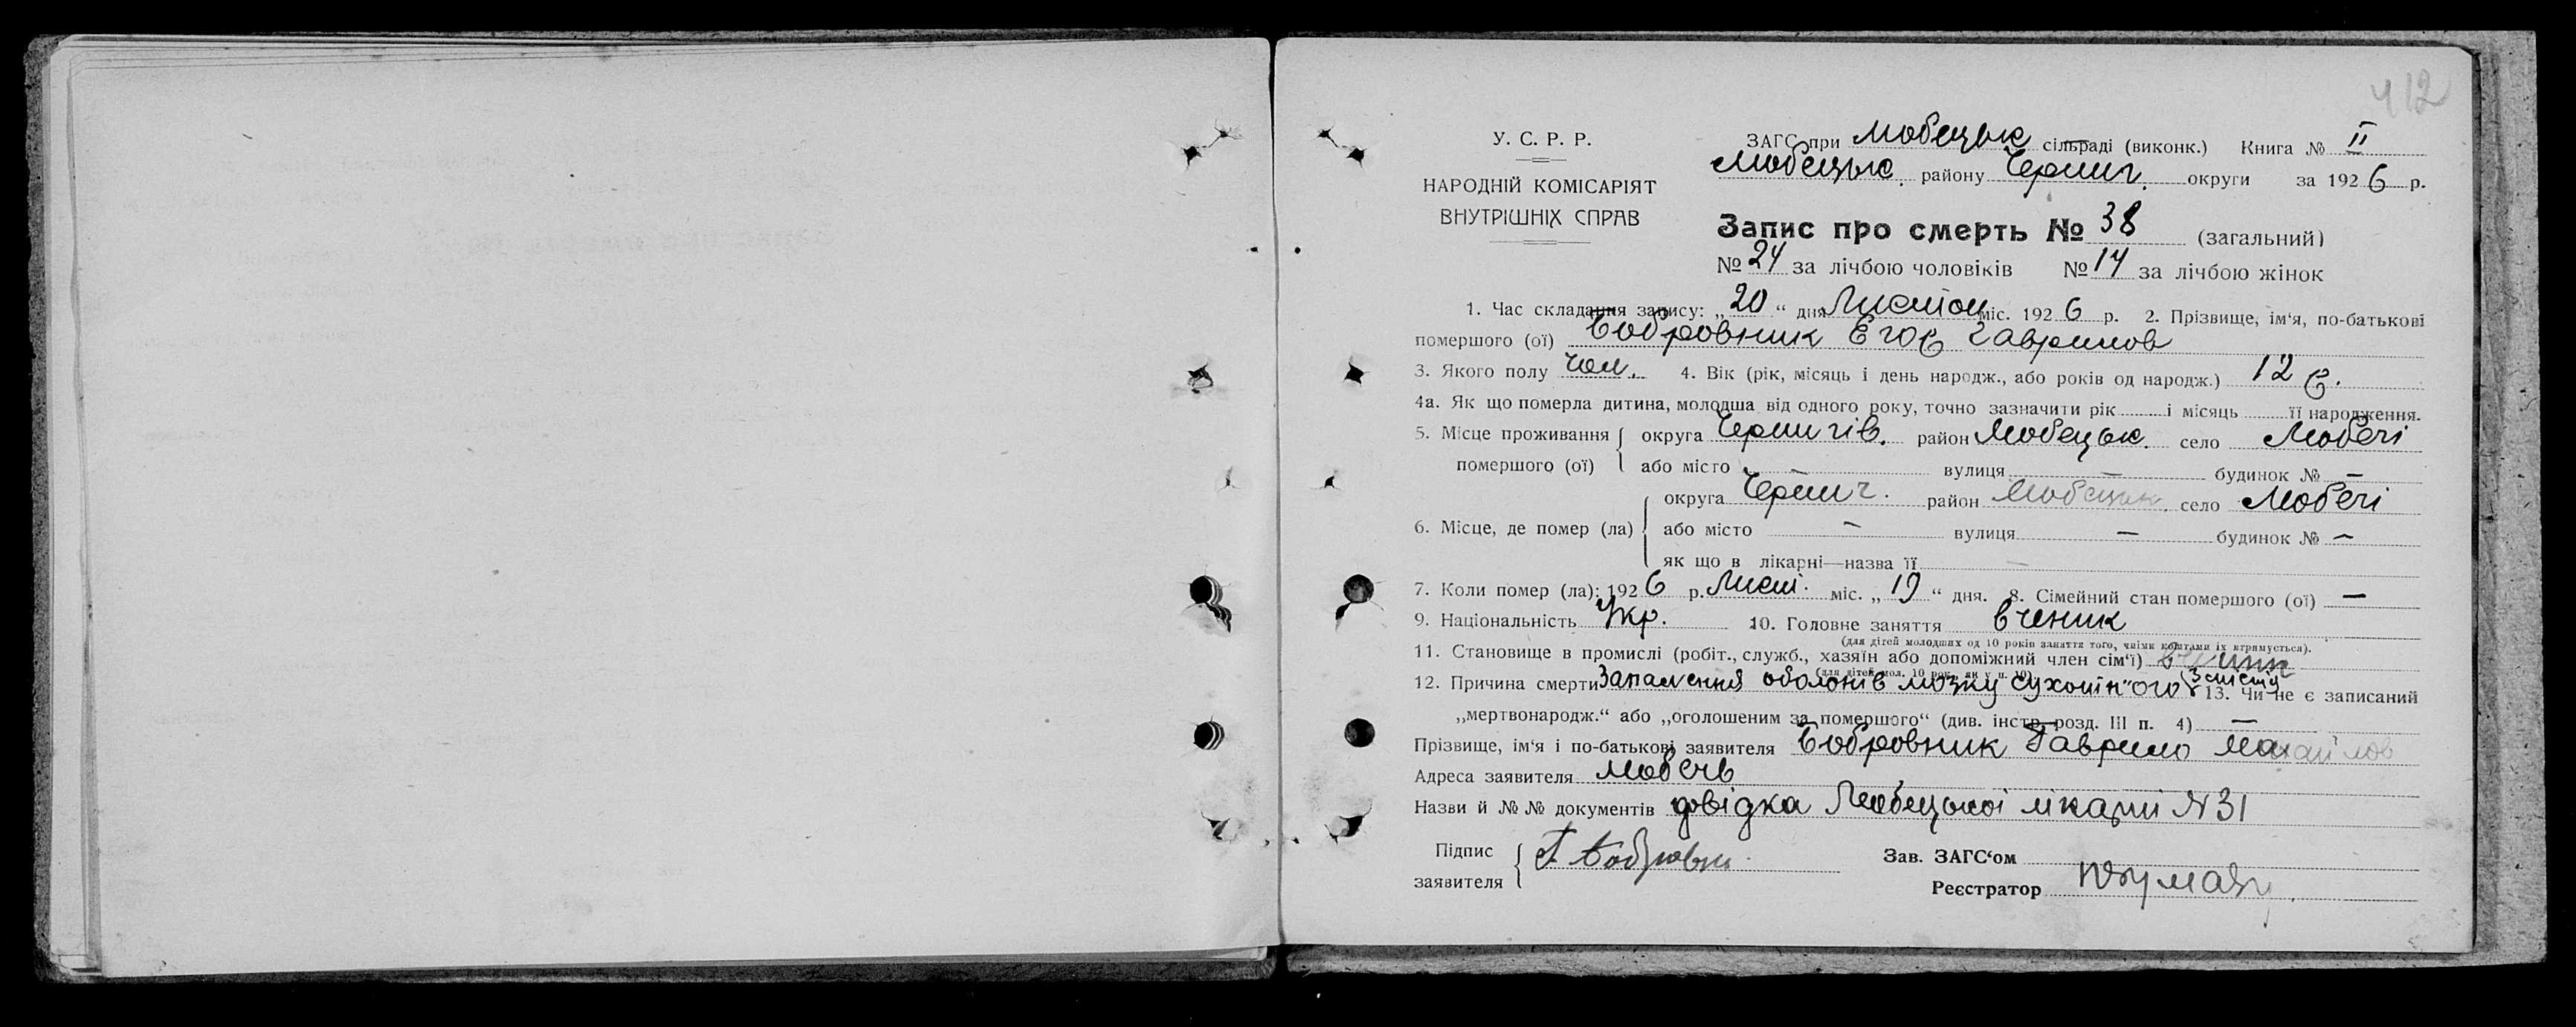 412
У. С. Р. Р.
НАРОДНІЙ КОМІСАРІЯТ
ВНУТРІШНІХ СПРАВ
ЗАГС при Любецьк сільраді (виконк.) Книга № II
Любецьк. району Черниг. округи за 1926 р.
Запис про смерть № 38 (загальний)
№ 24 за лічбою чоловіків № 14 за лічбою жінок
1. Час складання запису: „20“ дня Листоп міс. 1926 р. 2. Прізвище, ім‘я, по-батькові
помершого (ої) Бобровник Егор Гаврилов
3. Якого полу Чол. 4. Вік (рік, місяць і день народж., або років од народж.) 12 р.
4а. Як що померла дитина, молодша від одного року, точно зазначити рік і місяць її народження.
5. Місце проживання помершого (ої) округа Чернигів. район Любецьк. село Любечі
або місто — вулиця — будинок № —
6. Місце, де помер (ла) округа Черниг. район Любецьк. село Любечі
або місто — вулиця — будинок № —
як що в лікарні—назва її —
7. Коли помер (ла): 1926 р. Лист. міс. „19“ дня. 8. Сімейний стан помершого (ої) —
9. Національність Укр. 10. Головне заняття вченик
(для дітей молодших од 10 років заняття того, чиїми коштами їх втримується).
11. Становище в промислі (робіт., служб., хазяїн або допоміжний член сім‘ї)
(для дітей мол. 10 рок., як у п. 10)
12. Причина смерти Запалення оболонів мозку сухотн"ого змісту 13. Чи не є записаний
„мертвонародж.“ або „оголошеним за помершого“ (див. інстр. розд. III п. 4) —
Прізвище, ім‘я і по-батькові заявителя Бобровник Гаврило Михайлов
Адреса заявителя Любечь
Назви й №№ документів довідка Любецької лікарні № 31
Підпис заявителя Г. Бобровн
Зав. ЗАГС‘ом
Реєстратор